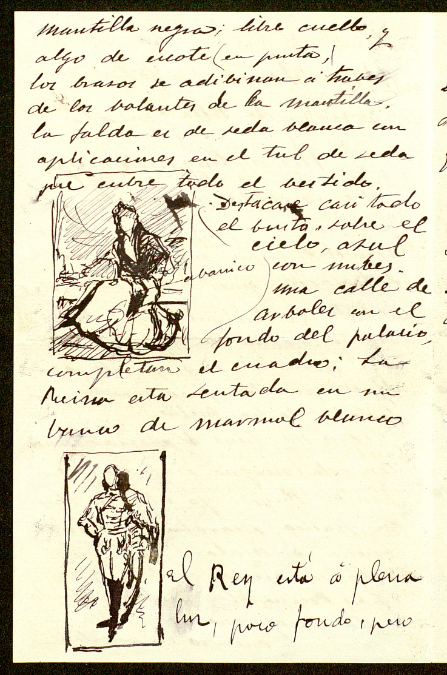 mantilla negra; libre cuello, y
algo de escote (en punta,)
los brasos se adibinan a traves
de los volantes de la mantilla.
la falda es de seda blanca con
aplicaciones en el tul de seda
que cubre todo el vestido.
Destacase casi todo
el busto, sobre el
cielo, azul
abanico
con nubes.
una calle de
arboles con el
fondo del palacio,
completan el cuadro; La
Reina esta sentada en un
banco de marmol blanco
El Rey está á plena
luz, poco fondo, pero